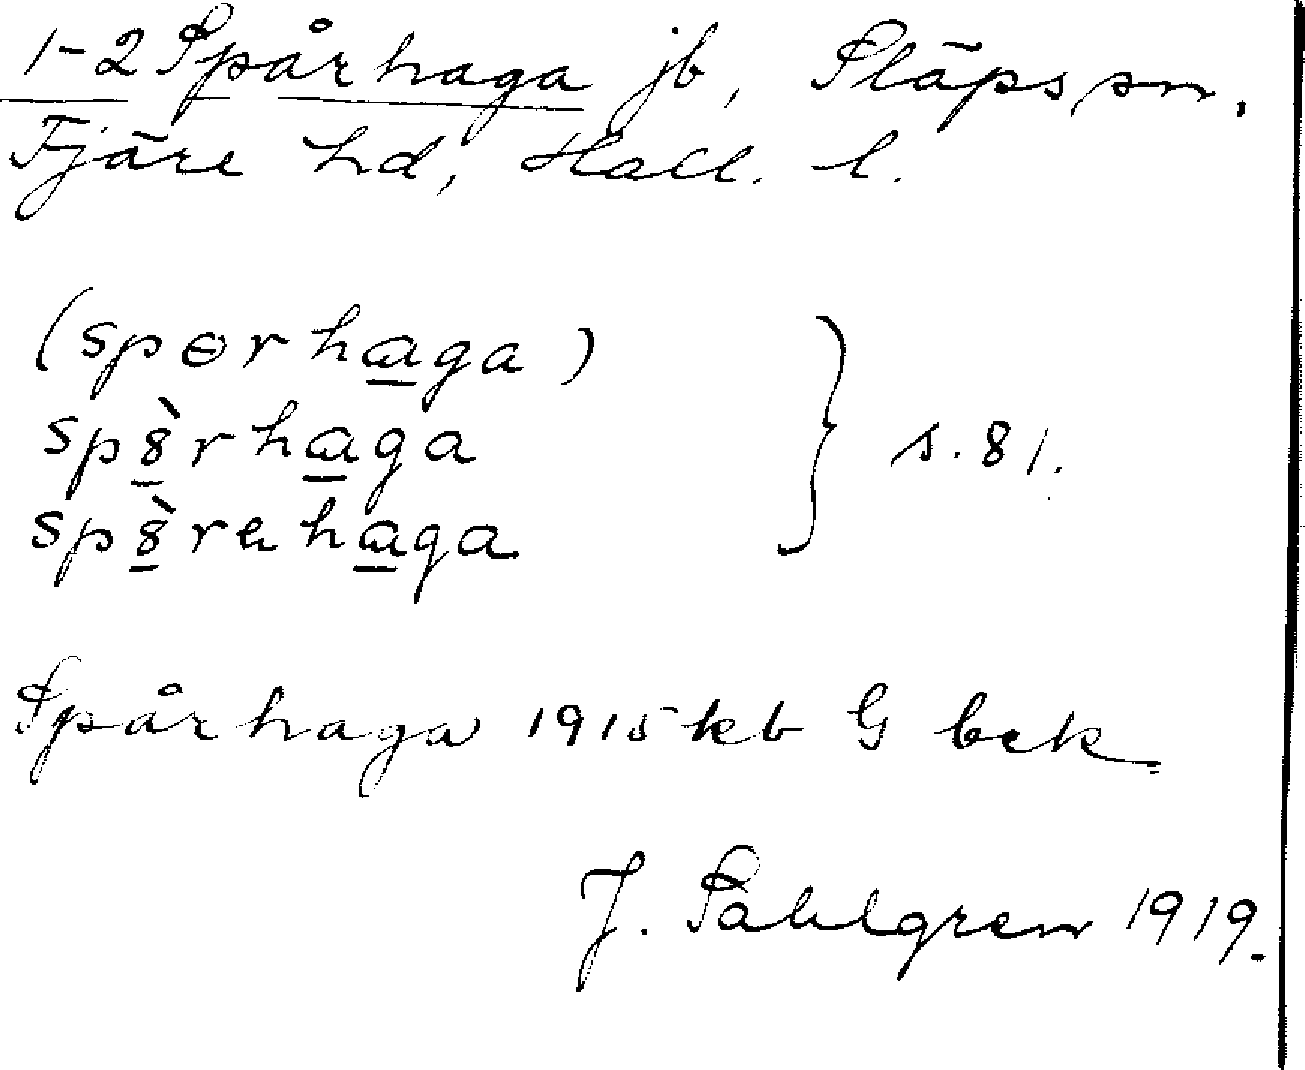 1-2 Spårhaga jb, Släps sn.
Fjäre hd, Hall. l.
(spɵrhaga)
sp8̀rhaga s.81.
sp8̀rahaga
Spårhaga 1915 kb G bek
J. Sahlgren 1919.